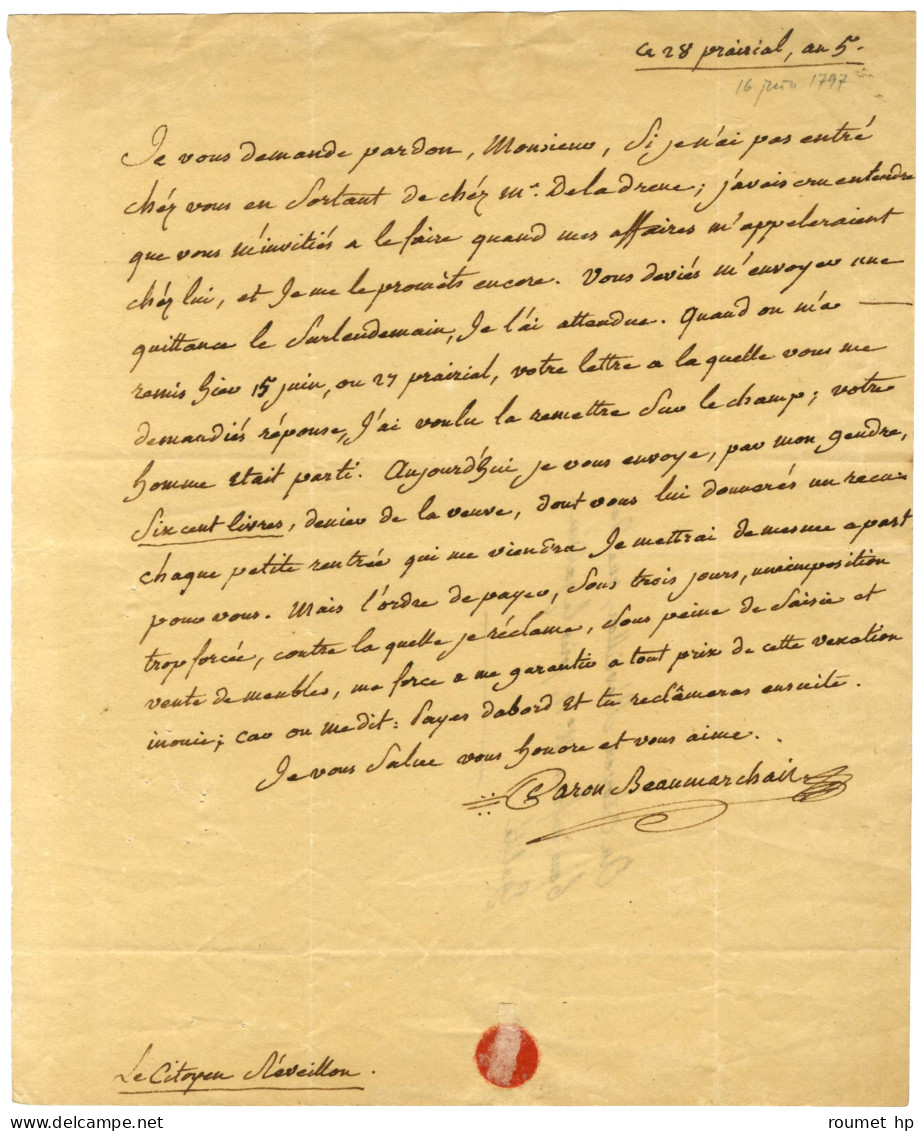 ce 28 prairial, an 5e.
16 juin 1797
Je vous demande pardon, Monsieur, Si je n'ai pas entré
chéz vous en Sortant de chéz mr. Deladreue; j'avais cru entendre
que vous m'invitiés a le faire quand mes affaires m'appeleraient
chéz lui, et Je me le prométs encore. Vous deviés m'envoyer une
quittance le Surlendemain, Je l'ai attendue. Quand on m'a
remis hier 15 juin, ou 27 prairial, votre lettre a la quelle vous me
demandiés réponse, J'ai voulu la remettre Sur le champ; votre
homme était parti. Aujourd'hui je vous envoye, par mon gendre,
Six cent livres, denier de la veuve, dont vous lui donnerés un recu=
chaque petite rentrée qui me viendra Je mettrai de mesme a part
pour vous. Mais l'ordre de payer, Sous trois jours, une imposition
trop forcée, contre la quelle je réclame, Sous peine de Saisie et
vente de meubles, me force a me garantir a tout prix de cette vexation
inouie; car on me dit: Payes dabord Et tu reclâmeras ensuite.
Je vous Salue vous honore et vous aime.
Caron Beaumarchais
Le Citoyen Réveillon.
roumet hp